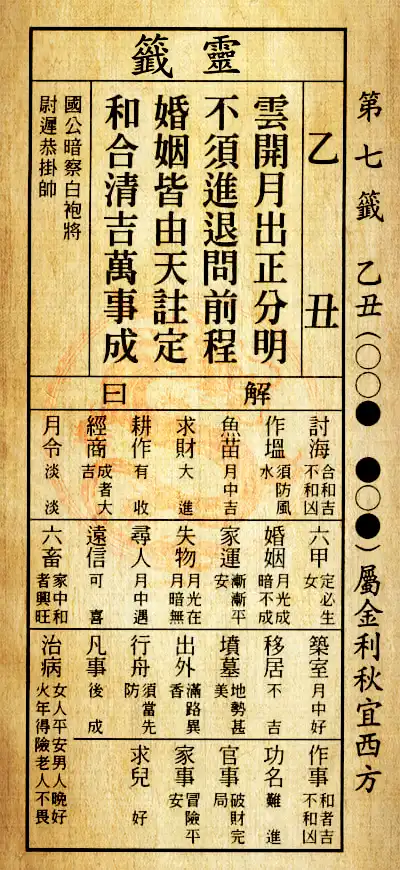 第七籤 乙丑(○○● ●○●)屬金利秋宜西方
靈籤
乙丑
雲開月出正分明
不須進退問前程
婚姻皆由天註定
和合清吉萬事成
國公暗察白袍將
尉遲恭掛帥
解曰
討海 合和吉不和凶
作塭 須防風水
魚苗 月中吉
求財 大進
耕作 有收
經商 成者大吉
月令 淡淡
六甲 定必生女
婚姻 月光成暗不成
家運 漸漸平安
失物 月光在月暗無
尋人 月中遇
遠信 可喜
六畜 家中和者興旺
築室 月中好
移居 不吉
墳墓 地勢甚美
出外 滿路異香
行舟 須當先防
凡事 後成
治病 女人平安男人晚好火年得險老人不畏
作事 和者吉不和凶
功名 難進
官事 破財完局
家事 冒險平安
求兒 好